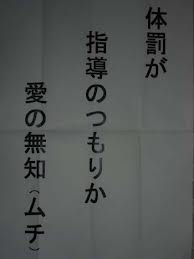 体罰が
指導のつもりか
愛の無知(ムチ)